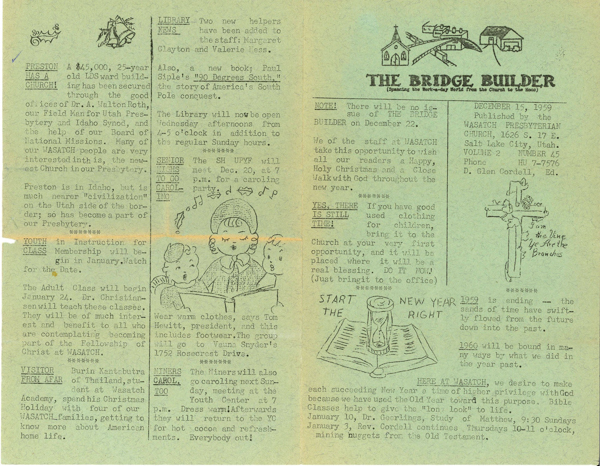 PRESTON A $45,000, 25-year
HAS A old LDS ward build-
CHURCH! ing has been secured
through the good
offices of Dr. A. Walton Roth,
our Field Man for Utah Pres-
bytery and Idaho Synod, and
the help of our Board of
National Missions. Many of
our WASATCH people are very
interested in this, the new-
est Church in our Presbytery.
Preston is in Idaho, but is
much nearer "civilization"
on the Utah side of the bor-
der; so has become a part of
our Presbytery.
YOUTH in Instruction for
CLASS Membership will be-
gin in January. Watch
for the Date.
The Adult Class will begin
January 24. Mr. Christian-
sen will teach these classes.
They will be of much inter-
est and benefit to all who
are contemplating becoming
part of the Fellowship of
Christ at WASATCH.
VISITOR Durin Kantabutra
FROM AFAR of Thailand, stu-
dent at Wasatch
Academy, spend his Christmas
Holiday with four of our
WASATCH families, getting to
know more about American
home life.
LIBRARY Two new helpers
NEWS have been added to
the staff: Margaret
Glayton and Valerie
Also, a new book; Paul
Siple's "90 Degrees South,"
the story of America's South
Pole conquest.
The Library will now be open
Wednesday afternoons from
4-5 o'clock in addition to
the regular Sunday hours.
SENIOR The SH UPYF will
HI'S meet Dec. 20, at 7
TO DO p.m. for a caroling
CAROL- party.
ING
Wear warm clothes, says Tom
Hewitt, president, and this
includes footwear. The group
will go to Vauna Snyder's
1752 Rosecrest Drive.
MINERS The Miners will also
CAROL, go caroling next Sun-
TOO day, meeting at the
Youth Center at 7
p.m. Dress warm. Afterwards
they will return to the YC
for hot cocoa and refresh-
ments. Everybody out!
THE BRIDGE BUILDER
(Spanning the Work-a-day World from the Church to the Home)
NOTE! There will be no is-
sue of THE BRIDGE
BUILDER on December 22.
We of the staff at WASATCH
take this opportunity to wish
all our readers a Happy,
Holy Christmas and a Close
Walk with God throughout the
new year.
YES, THERE If you have good
IS STILL used clothing
TIME for children,
bring it to the
Church at your very first
opportunity, and it will be
placed where it will be a
real blessing. DO IT NOW!
(Just bring it to the office)
DECEMBER 15, 1959
Published by the
WASATCH PRESBYTERIAN
CHURCH, 1626 S. 17 E.
Salt Lake City, Utah.
VOLUME 2 NUMBER 45
Phone HU 7-7576
D. Glan Cordell, Ed.
I am
the Vine
Ye Are the
Branches
START THE NEW YEAR RIGHT
1959 is ending -- the
sands of time have swift-
ly flowed from the future
down into the past.
1960 will be bound in ma-
ny ways by what we did in
the year past.
HERE AT WASATCH, we desire to make
each succeeding New Year a time of higher privilege with God
because we have used the Old Year toward this purpose. Bible
Classes help to give the "long look" to life.
January 10, Dr. Goerlings, Study of Matthew, 9:30 Sundays
January 3, Rev. Cordell continues Thursdays 10-11 o'clock,
mining nuggets from the Old Testament.